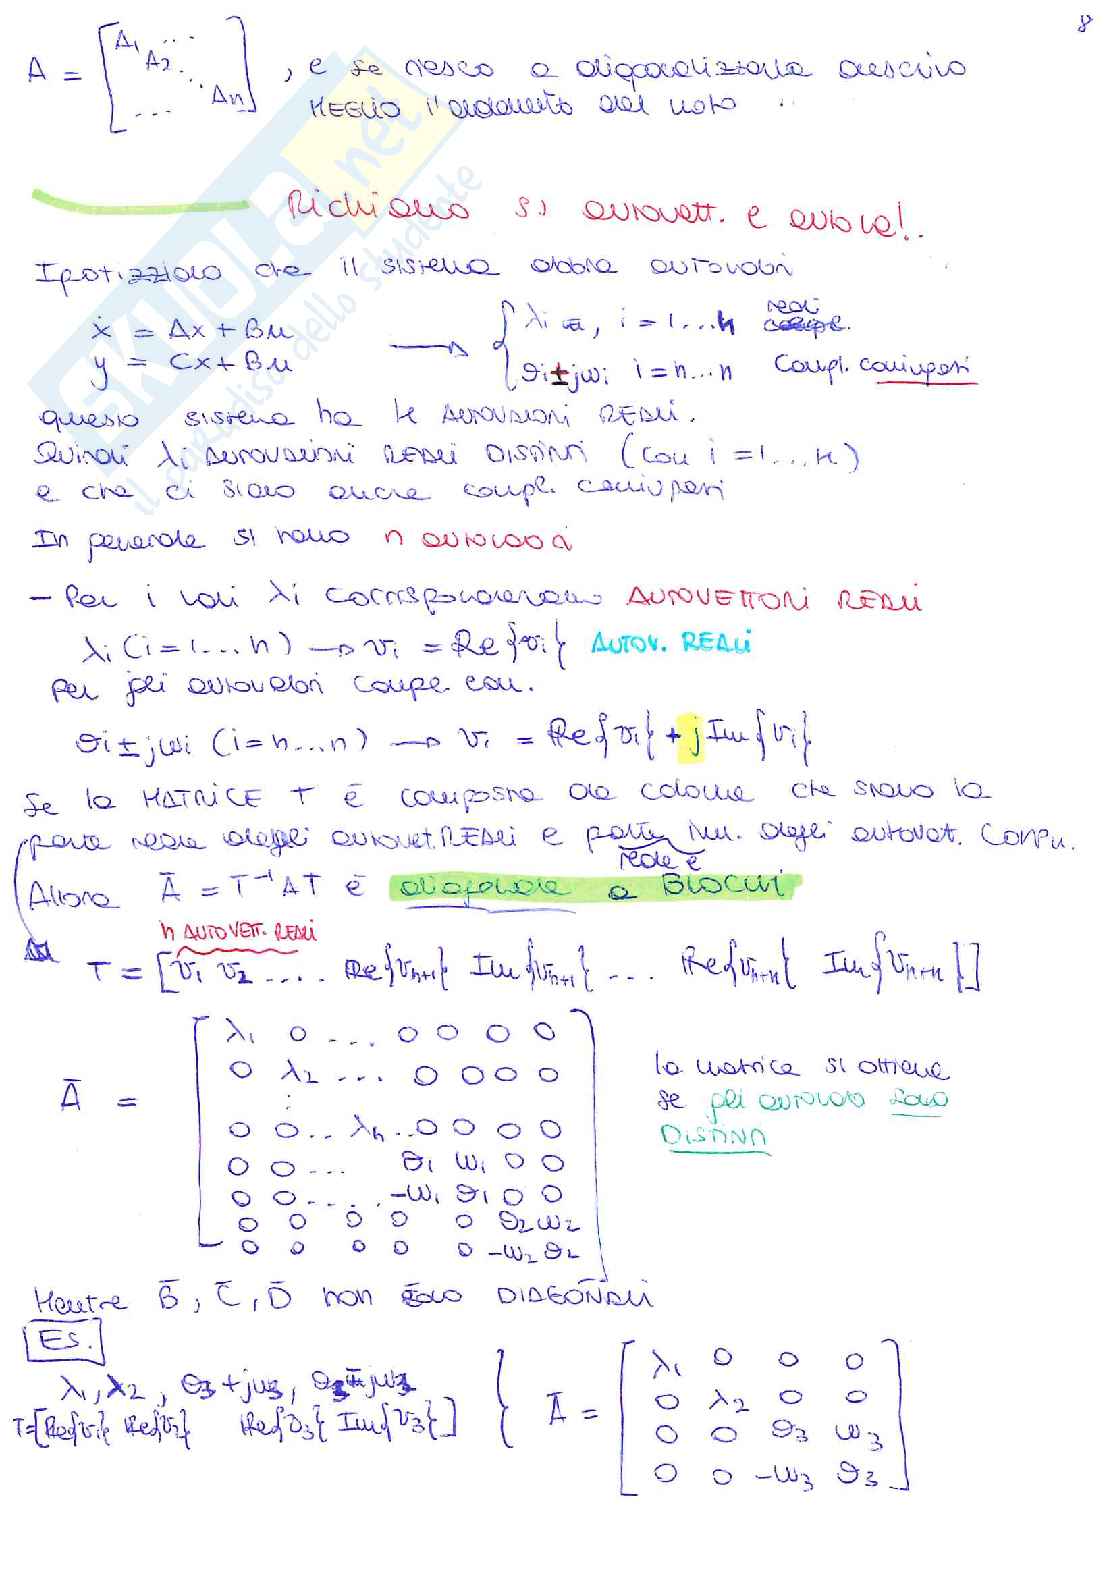 8
A = [ A1 ... A2 ... An ... ] , e se riesco a diagonalizzarla descrivo
MEGLIO l'andamento del moto
Richiamo su autovett. e autoval.
Ipotizziamo che il sistema abbia autovalori
ẋ = Ax + Bu → { λi , i = 1...n reali
y = Cx + Bu σi ± jωi i = n...n Compl. coniugati
questo sistema ha le AUTOVALORI REALI.
Quindi λi AUTOVALORI REALI DISTINTI (con i = 1...n)
e che ci siano anche compl. coniugati
In generale si hanno n autovalori
- Per i vari λi corrisponderanno AUTOVETTORI REALI
λi (i = 1...n) → vi = Re{vi} AUTOV. REALI
Per gli autovalori compl. con.
σi ± jωi (i = n...n) → vi = Re{vi} + j Im{vi}
Se la MATRICE T è composta da colonne che siano la
parte reale degli autovet. REALI e parte reale e Im. degli autovet. COMPL.
Allora Ā = T⁻¹AT è diagonale a BLOCCHI
n AUTOVETT. REALI
T = [v1 v2 .... Re{vn+1} Im{vn+1} ... Re{vn+n} Im{vn+n}]
Ā = [ λ1 0 ... 0 0 0 0
0 λ2 ... 0 0 0 0
⋮
0 0 .. λn .. 0 0 0 0
0 0 ... σ1 ω1 0 0
0 0 .... -ω1 σ1 0 0
0 0 0 0 0 σ2 ω2
0 0 0 0 0 -ω2 σ2 ]
la matrice si ottiene
se gli autovalo sono
DISTINTI
Mentre B̄, C̄, D̄ non sono DIAGONALI
ES.
λ1, λ2, σ3 + jω3, σ3 - jω3
T = [Re{v1} Re{v2} Re{v3} Im{v3}]
Ā = [ λ1 0 0 0
0 λ2 0 0
0 0 σ3 ω3
0 0 -ω3 σ3 ]
SKUOLA.net
il paradiso dello studente